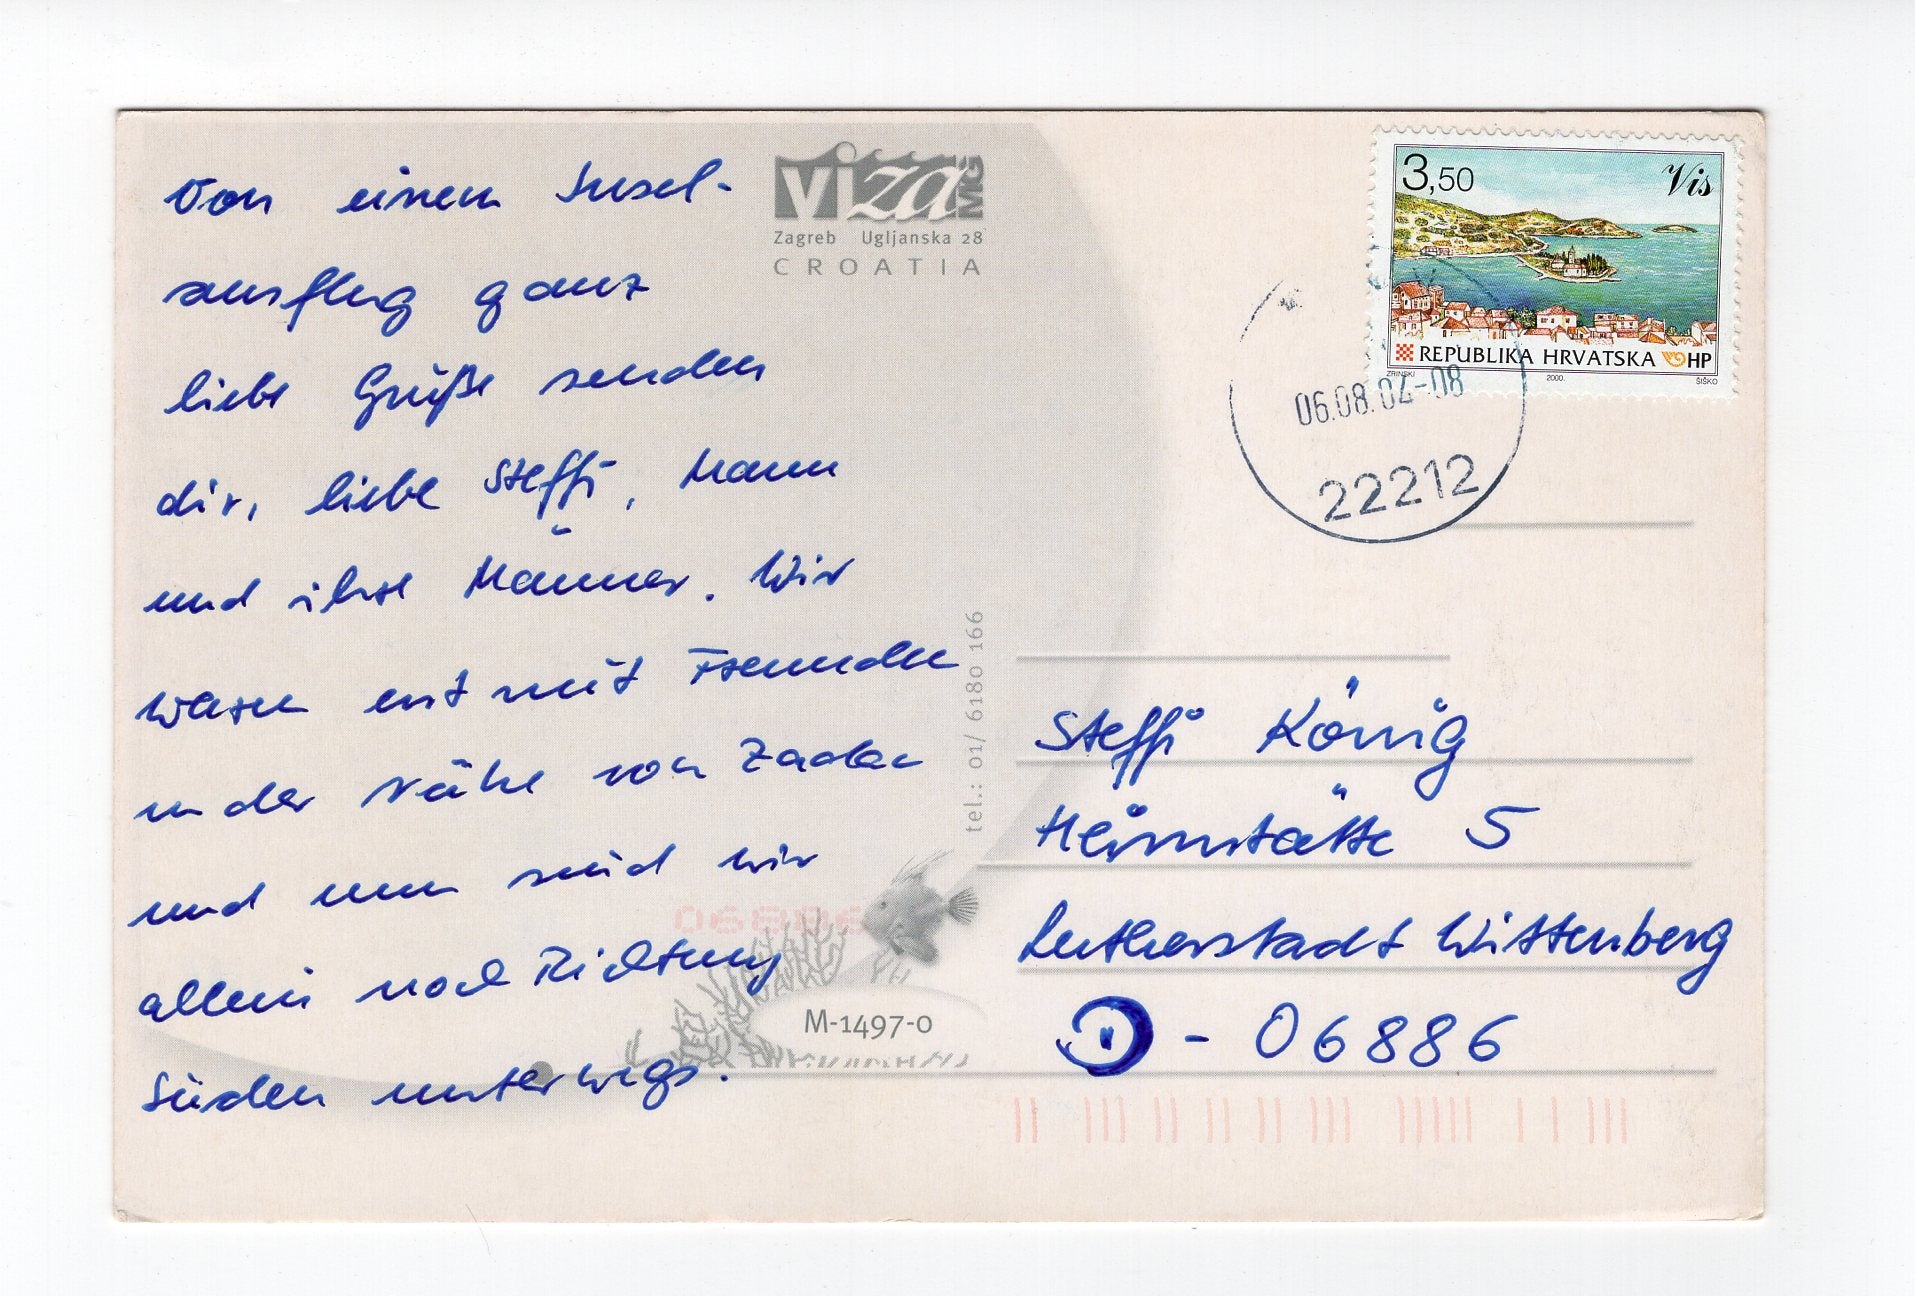 Von einem Insel-
ausflug ganz
liebe Grüße senden
dir, liebe Steffi, Mann
und ihre Männer. Wir
waren erst mit Freunden
in der Nähe von Zadar
und nun sind wir
allein nach Richtung
Süden unterwegs.
viza MG
Zagreb Ugljanska 28
CROATIA
tel.: 01/ 6180 166
06886
M-1497-0
3,50
Vis
REPUBLIKA HRVATSKA HP
ZRINSKI 2000. ŠIŠKO
06.08.04-08
22212
Steffi König
Heimstätte 5
Lutherstadt Wittenberg
D - 06886